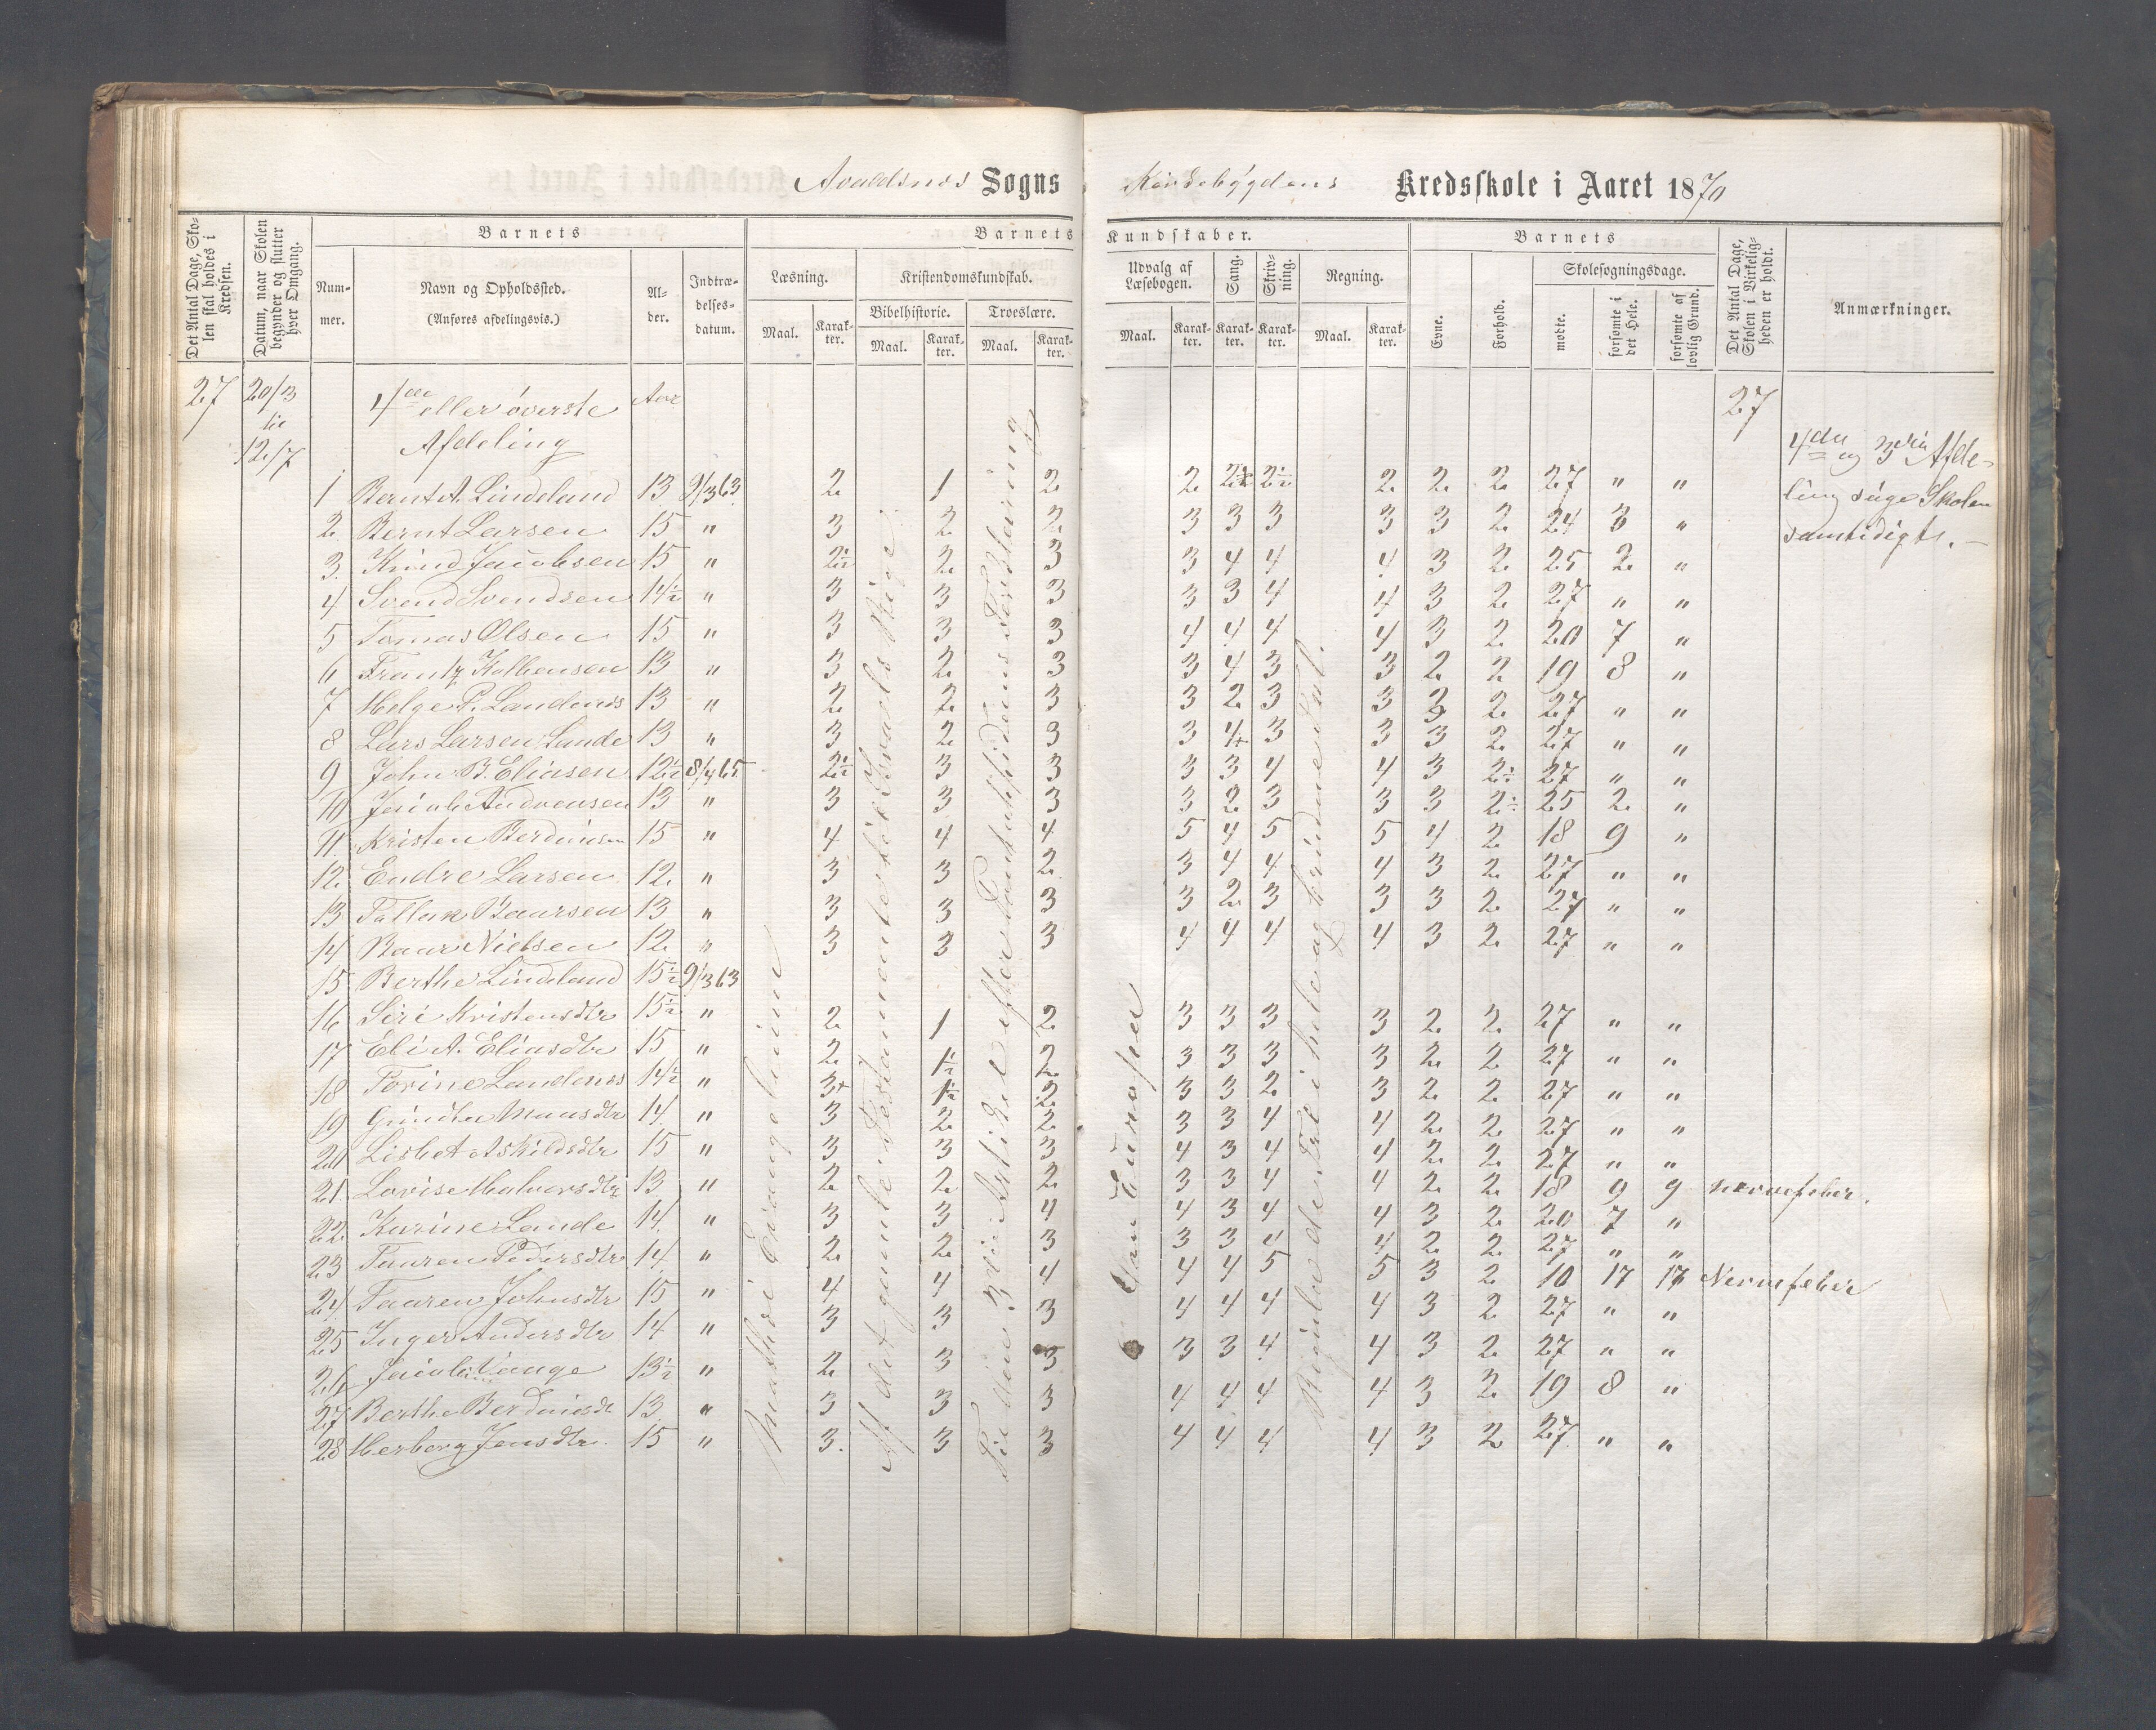 Avaldsnes Sogns Kirkebygdens Kredsskole i Aaret 1870
Det Antal Dage, Skolen skal holdes i Kredsen.
Datum, naar Skolen begynder og slutter hver Omgang.
Barnets
Nummer.
Navn og Opholdssted.
(Anføres afdelingsvis.)
Alder.
Indtrædelsesdatum.
Barnets Kundskaber.
Læsning.
Maal. Karakter.
Kristendomskundskab.
Bibelhistorie. Troeslære.
Maal. Karakter. Maal. Karakter.
Udvalg af Læsebogen.
Maal. Karakter.
Sang. Karakter.
Skrivning. Karakter.
Regning.
Maal. Karakter.
Barnets
Evne. Forhold.
Skolesøgningsdage.
mødte. forsømte i det Hele. forsømte af lovlig Grund.
Det Antal Dage, Skolen i Virkeligheden er holdt.
Anmærkninger.
27 20/3 til 12/7
4de eller øverste Afdeling
Aar
27
4de og 3die Afdeling søge Skolen samtidigt. —
1 Bernt A. Lindeland 13 9/3 63 2 1 2 2 2½ 2½ 2 2 2 27 " "
2 Bernt Larsen 15 " 3 2 2 3 3 3 3 3 2 24 3 "
3. Knud Jacobsen 15 " 2½ 2 3 3 4 4 4 3 2 25 2 "
4 Svend Svendsen 14½ " 3 3 3 3 3 4 4 3 2 27 " "
5 Tomas Olsen 15 " 3 3 3 4 4 4 4 3 2 20 7 "
6 Frantz Kolbensen 13 " 3 2 3 3 4 3 3 2 2 19 8 "
7 Helge P. Landenes 13 " 2 2 3 3 2 3 3 3 2 27 " "
8 Lars Larsen Lande 13 " 3 2 3 3 4+ 3 3 3 2 27 " "
9 John B. Eliasen 12½ 8/4 65 2½ 3 3 3 3 4 4 3 2½ 27 " "
10 Jacob Andreensen 13 " 3 3 3 3 2 3 3 3 2½ 25 2 "
11. Kristen Berdinsen 15 " 4 4 4 5 4 5 5 4 2 18 9 "
12. Endre Larsen 12. " 3 3 2 3 4 4 4 3 2 27 " "
13 Tallak Baarsen 13 " 3 3 3 3 2 3 3 3 2 27 " "
14 Baar Nielsen 12 " 3 3 3 4 4 4 4 3 2 27 " "
15 Berthe Lindeland 15½ 9/3 63
16 Siri Kristensdtr 15½ " 2 1 2 3 3 3 3 2 2 27 " "
17 Eli A. Eliasdtr 15 " 2 1½ 2 3 3 3 3 2 2 27 " "
18 Torine Landenes 14½ " 3+ 1½ 2 3 3 2 3 2 2 27 " "
19 Maansdtr 14 " 3 2 2 3 3 4 4 2 2 27 " "
20 Lisbet Askildsdtr 15 " 3 3 3 4 3 4 4 2 2 27 " "
21. Lovise Halvorsdtr 13 " 2 2 2 3 3 4 4 2 2 18 9 9 nervefeber.
22 Karine Lande 14. " 3 3 4 4 3 4 4 3 2 20 7 "
23 Taaren Pedersdtr 14 " 2 2 3 3 3 4 4 2 2 27 " "
24 Taaren Johnsdtr 15 " 4 4 4 4 4 5 5 3 2 10 17 17 Nervefeber
25 Inger Andersdtr 14 " 3 3 3 4 4 4 4 3 2 27 " "
26 Vange 13½ " 2 3 3 3 3 4 4 3 2 27 " "
27 Berthe Berdinisdt 13 " 3 3 3 4 4 4 4 3 2 19 8 "
28 Herborg Jensdtr. 15 " 3. 3 3 4 4 4 4 3 2 27 " "
Matthæi Evangelium
Af det gamle Testamente til Israels Rige
Til den 3die Artikel efter Pontoppidans Forklaring
Om Europa
Regula de Tri i hele og brudne Tal.